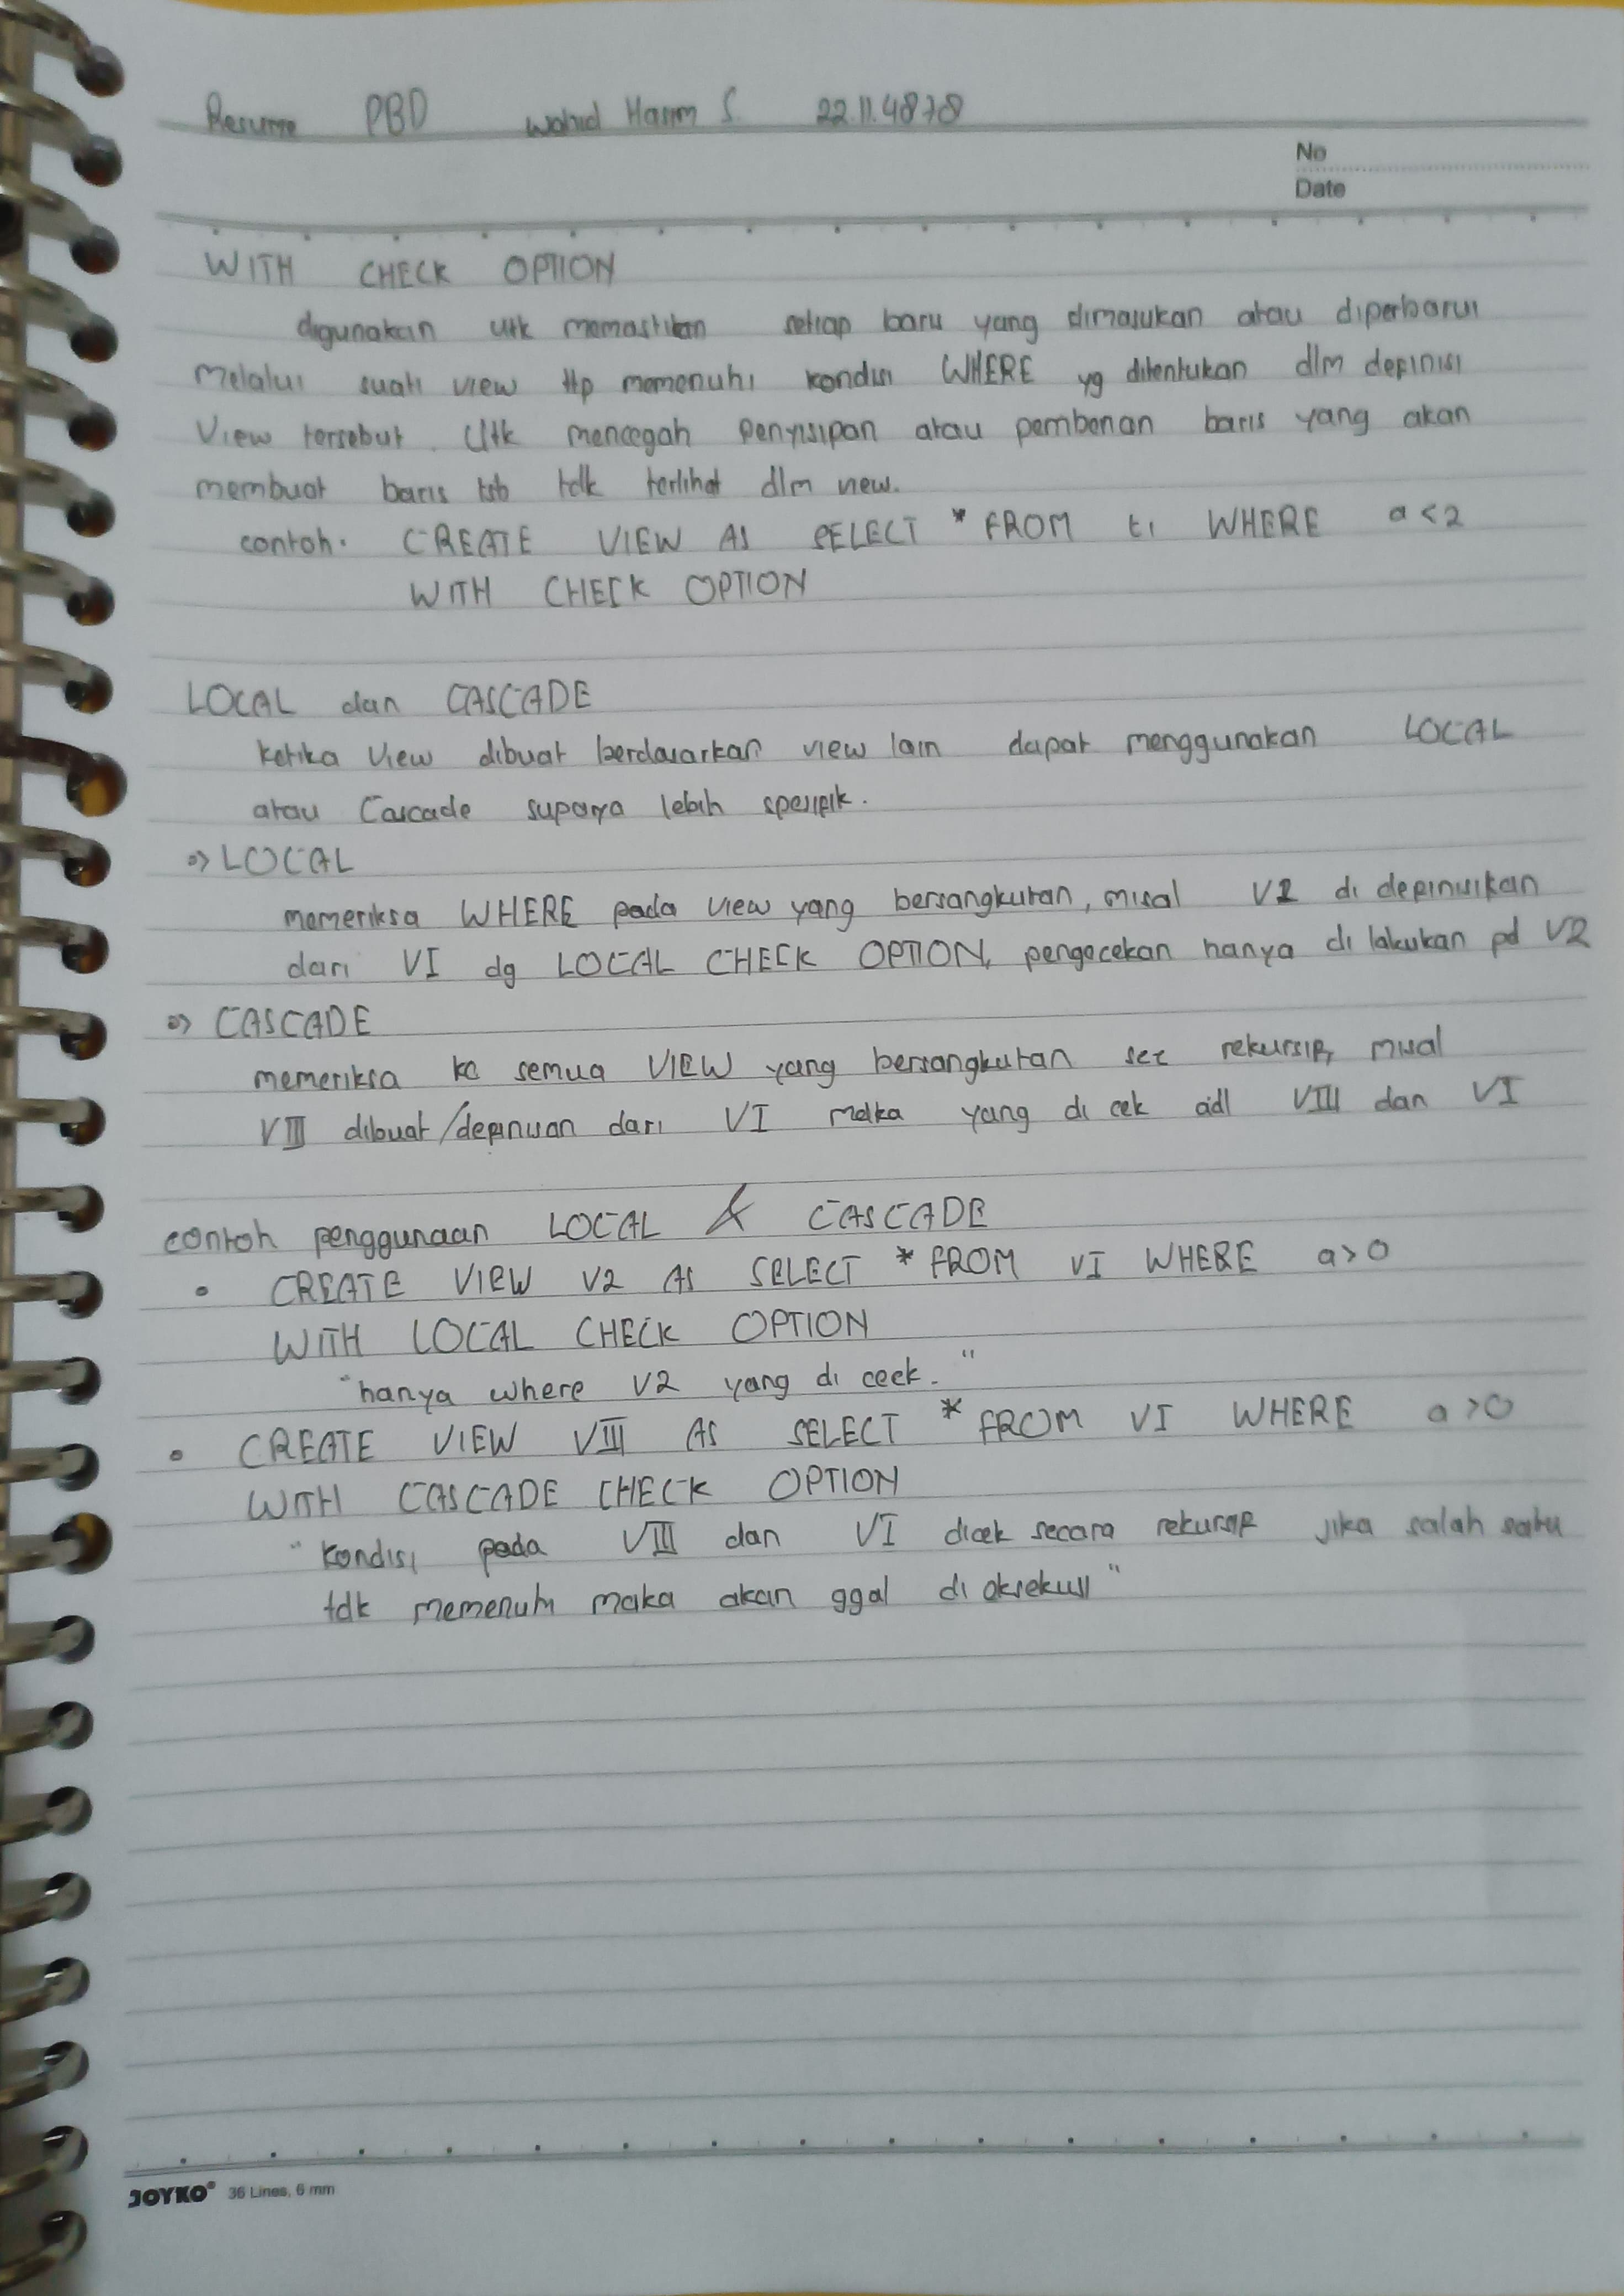 Resume PBD Wahid Hasim S. 22.11.4878
No
Date
WITH CHECK OPTION
digunakan utk memastikan setiap baru yang dimasukan atau diperbarui
Melalui suatu view ttp memenuhi kondisi WHERE yg ditentukan dlm depinisi
View tersebut. Utk mencegah penyisipan atau pembaruan baris yang akan
membuat baris tsb tdk terlihat dlm view.
contoh. CREATE VIEW AS SELECT * FROM t1 WHERE a < 2
WITH CHECK OPTION
LOCAL dan CASCADE
ketika View dibuat berdasarkan view lain dapat menggunakan LOCAL
atau Cascade supaya lebih spesipik.
=> LOCAL
memeriksa WHERE pada view yang bersangkutan, misal V2 di depinisikan
dari VI dg LOCAL CHECK OPTION, pengecekan hanya di lakukan pd V2
=> CASCADE
memeriksa ke semua VIEW yang bersangkutan sec rekursip, misal
VIII dibuat/depinisan dari VI maka yang di cek adl VIII dan VI
contoh penggunaan LOCAL & CASCADE
• CREATE VIEW V2 AS SELECT * FROM VI WHERE a > 0
WITH LOCAL CHECK OPTION
"hanya where V2 yang di ceek."
• CREATE VIEW VIII AS SELECT * FROM VI WHERE a > 0
WITH CASCADE CHECK OPTION
"kondisi pada VIII dan VI dicek secara rekursip jika salah satu
tdk memenuhi maka akan ggal di eksekusi"
JOYKO® 36 Lines, 6 mm